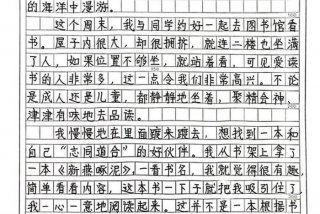 的海洋中漫游。
这个周末，我与同学约好一起去图书馆看
书。屋子内很大，却很拥挤，就连二楼也坐满
了人，如果位置不够坐，就站着看，可见爱读
书的人非常多，这一点令我们非常高兴。不论
是成人还是儿童，都静静地坐着，聚精会神、
津津有味地去品读。
我慢慢地在里面踱来踱去，想找到一本和
自己“志同道合”的好伙伴。我从书架上拿了
一本《新燕啄泥》。一看书名，我就觉得很有趣，
简单看看内容，这本书一下子就把我吸引住了
我一心一意地阅读起来。这并不是一本